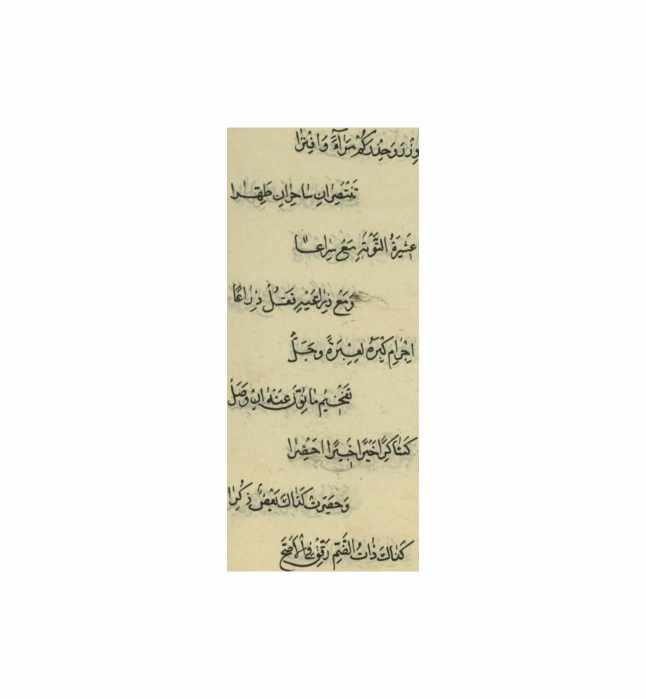 وِزْرَ وَحِذْرَكُمْ مِرَاءً وَافْتِرَا
تَنْتَصِرَانِ سَاحِرَانِ طَهِّرَا
عَشِيرَةُ التَّوْبَةِ مَعْ سِرَاعًا
وَمَعْ ذِرَاعَيْهِ فَقُلْ ذِرَاعًا
اجْرَامِ كِبْرَهُ لَعِبْرَةً وَجَلّْ
تَفْخِيمُ مَا نُوِّنَ عَنْهُ انْ وَصَلْ
كَشَاكِرًا خَيْرًا خَبِيرًا اخَضِرَا
وَحَصِرَتْ كَذَاكَ بَعْضٌ ذَكَرَا
كَذَاكَ ذَاتُ الضَّمِّ رَقِّقْ فِي الاصَحّْ